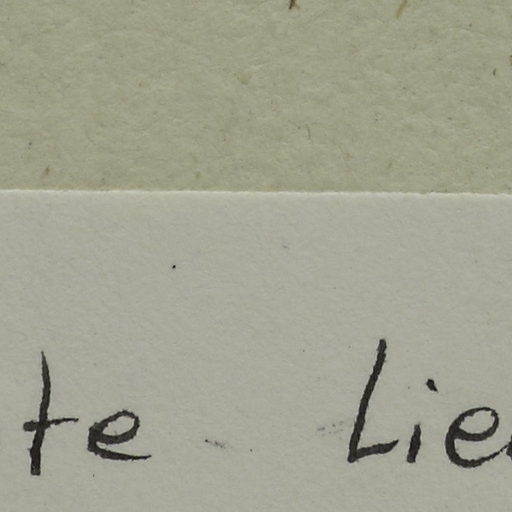 te Lie